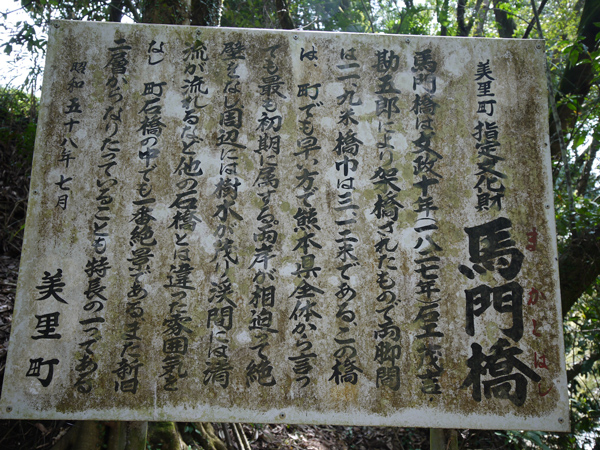 美里町 指定文化財
まかどばし
馬門橋
馬門橋は文政十年(一八二七年)石工茂吉
勘五郎により架橋されたもので両脚間
は二一、九米橋巾は三、二米である、この橋
は、町でも早い方で熊本県全体から言っ
ても最も初期に属する。両岸が相迫って絶
壁をなし周辺には樹木が茂り渓間には清
流が流れるなど他の石橋とは違った雰囲気を
なし、町石橋の中でも一番絶景であるまた新旧
二層からなりたっていることも特長の一つである
昭和五十八年七月
美里町